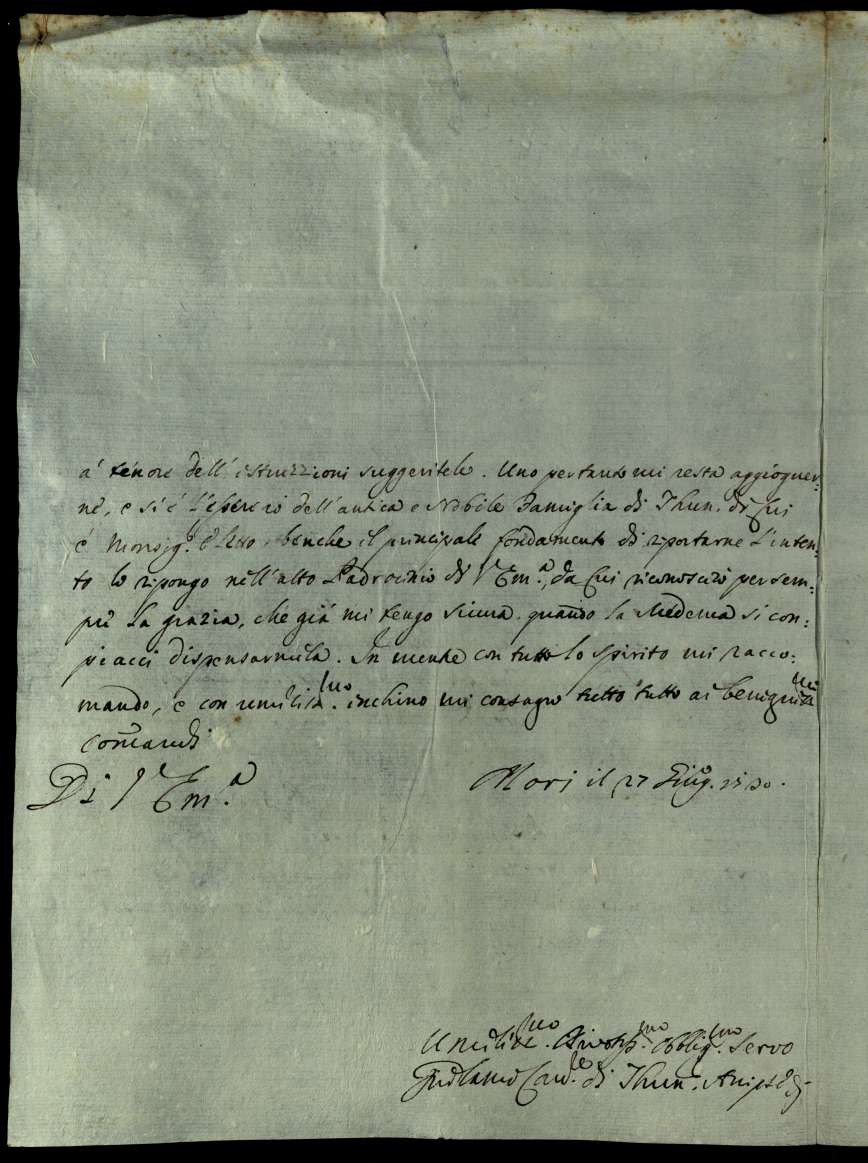 a' tenore dell'istruzzioni suggeritele. Uno pertanto mi resta aggioguer:
ne, e si é l'essere io dell'antica e Nobile Famiglia di Thun. di cui
é Monsig.r benche il principale fondamento di riportarne l'inten:
to lo ripongo nell'alto Padrocinio di V Em.a, da cui riconoscerò persem:
pre la grazia, che giá mi tengo sicura quando la Medema si con:
piacci dispensarmela. In mente con tutto lo spirito mi racco:
mando, e con umiliss.mo inchino mi consagro tutto tutto ai benigniss.mi
comandi
Di V Em.a Mori il 27 Giug.o
Umiliss.mo Divotiss.mo Obblig.mo Servo
di Thun.